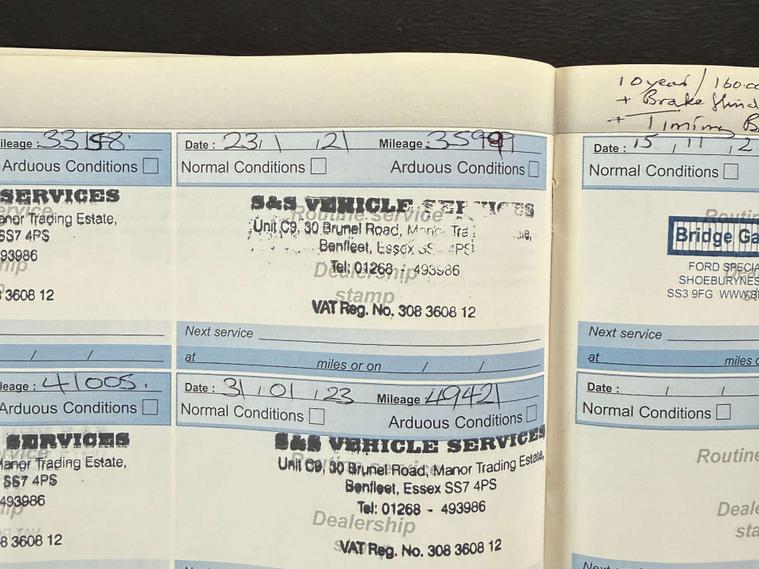 10 year / 160.00
+ Brake
+ Timing B
ileage : 33158.
Arduous Conditions
SERVICES
anor Trading Estate,
SS7 4PS
93986
8 3608 12
/ /
Date : 23 / 1 / 21 Mileage : 35999
Normal Conditions Arduous Conditions
S&S VEHICLE SERVICES
Routine service
Unit C9, 30 Brunel Road, Manor Tra
Benfleet, Essex SS 4PS
Dealership
Tel: 01268 - 493986
stamp
VAT Reg. No. 308 3608 12
Next service
at miles or on / /
Date : 15 / 11 / 2
Normal Conditions
Bridge Ga
FORD SPECIA
SHOEBURYNES
SS3 9FG WWW.B
Next service
at miles o
leage : 41005.
Arduous Conditions
SERVICES
Manor Trading Estate,
SS7 4PS
493986
8 3608 12
Date : 31 / 01 / 23 Mileage 49421
Normal Conditions Arduous Conditions
S&S VEHICLE SERVICES
Unit C9, 30 Brunel Road, Manor Trading Estate,
Benfleet, Essex SS7 4PS
Tel: 01268 - 493986
Dealership
VAT Reg. No. 308 3608 12
Date : / /
Normal Conditions
Routine
Deale
sta
Next service